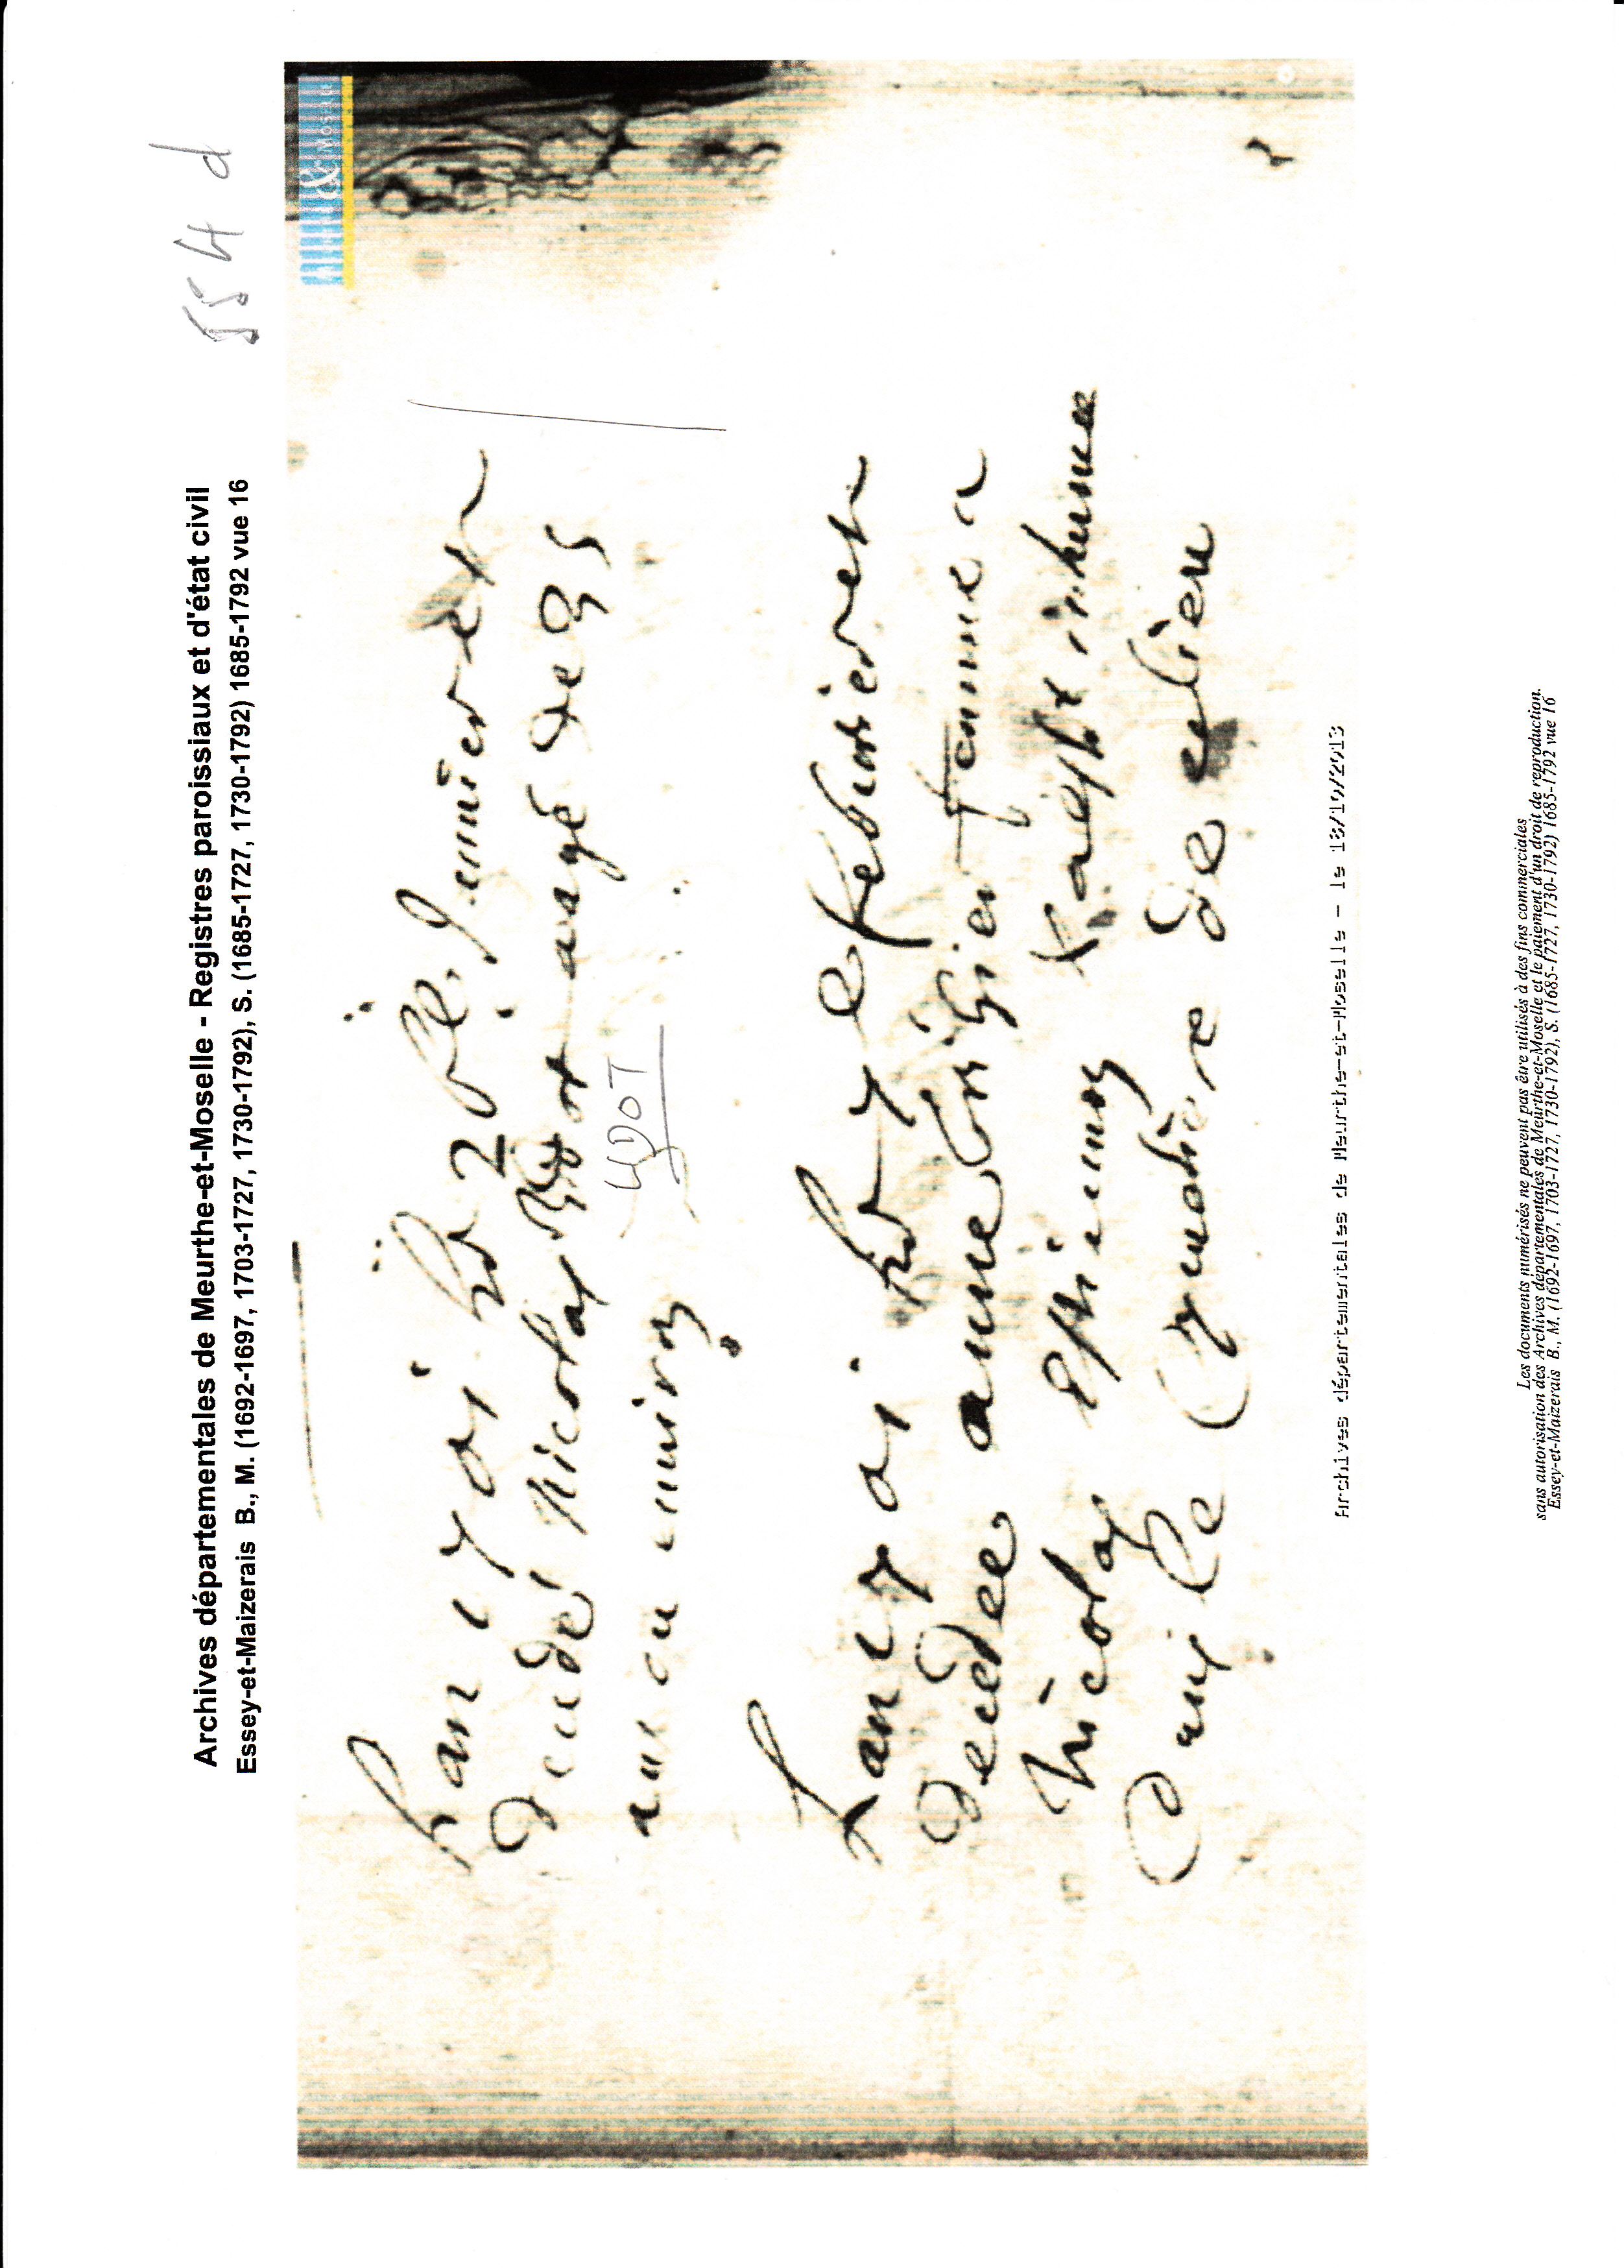 Archives départementales de Meurthe-et-Moselle - Registres paroissiaux et d'état civil
Essey-et-Maizerais B., M. (1692-1697, 1703-1727, 1730-1792), S. (1685-1727, 1730-1792) 1685-1792 vue 16
554 d
Lan 1701 le 20e Jenvier est
decedé Nicolas Hydot aagé de 85
HDOT
ans ou environ
Lan 1701 le 7e febvrier est
decedee anne femme a
Nicolas Estienne et inhumee
Dans le Cymetière de ce lieu
Archives départementales de Meurthe-et-Moselle - le 18/10/2013
Les documents numérisés ne peuvent pas être utilisés à des fins commerciales
sans autorisation des Archives départementales de Meurthe-et-Moselle et le paiement d'un droit de reproduction.
Essey-et-Maizerais B., M. (1692-1697, 1703-1727, 1730-1792), S. (1685-1727, 1730-1792) 1685-1792 vue 16